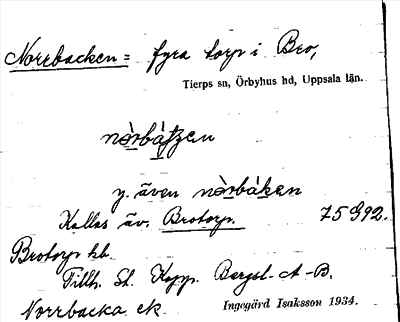 Norrbacken = fyra torp i Bro,
Tierps sn, Örbyhus hd, Uppsala län.
nòrbàtzen
y. även nòrbàken
Kallas äv. Brotorp. 75 G92.
Brotorp hb.
Tillh. St. Kopp. Bergsl.-A-B.
Norrbacka ek.
Ingegärd Isaksson 1934.